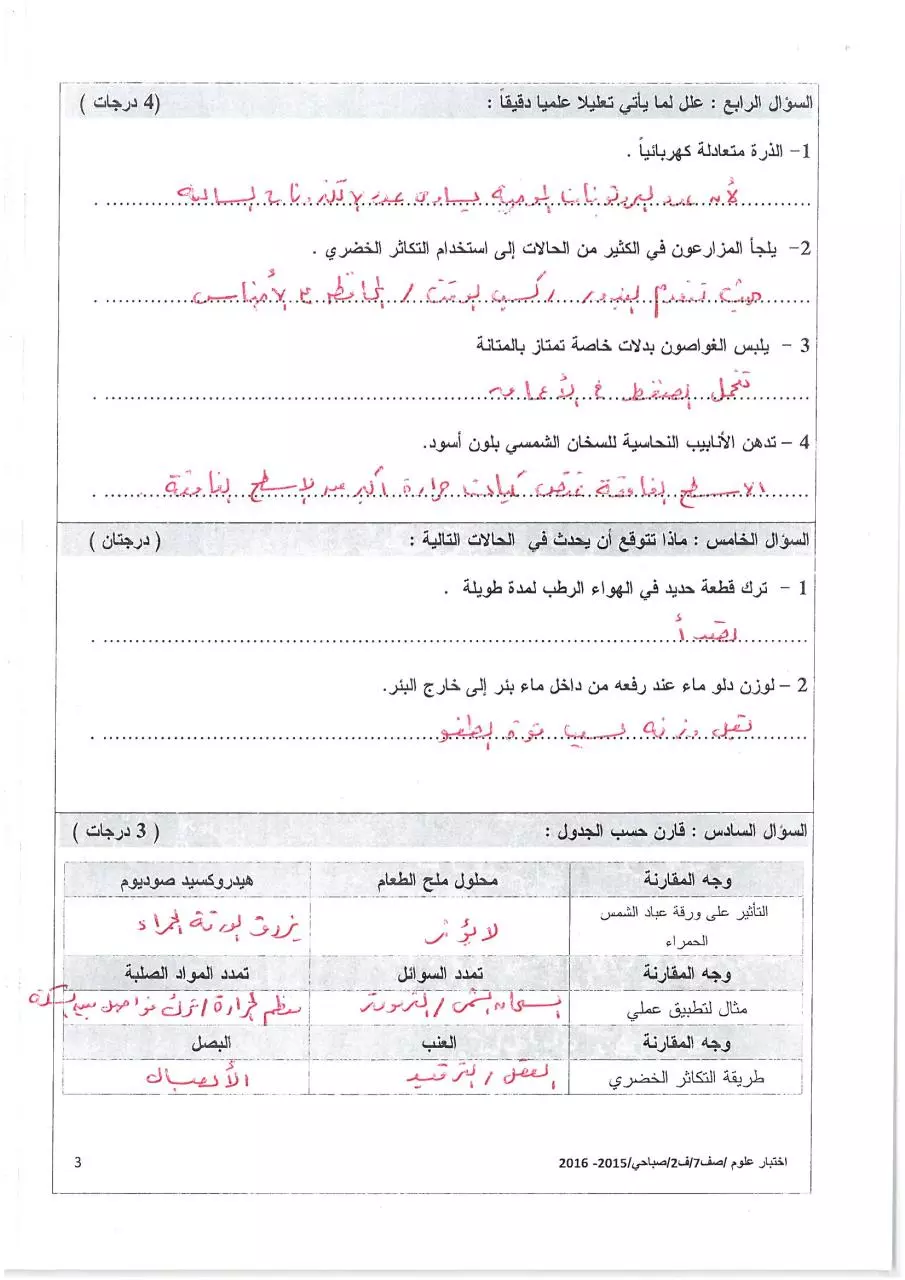 السؤال الرابع : علل لما يأتي تعليلا علميا دقيقاً : (4 درجات )
1- الذرة متعادلة كهربائياً .
لأن عدد البروتونات الموجبة يساوي عدد الالكترونات السالبة
2- يلجأ المزارعون في الكثير من الحالات إلى استخدام التكاثر الخضري .
حيث تنعدم البذور / كسب الوقت / المحافظة ع الأجناس
3 - يلبس الغواصون بدلات خاصة تمتاز بالمتانة
تتحمل الضغط في الأعماق
4 – تدهن الأنابيب النحاسية للسخان الشمسي بلون أسود.
الاسطح الغامقة تمتص كميات حرارة أكبر من الاسطح
السؤال الخامس : ماذا تتوقع أن يحدث في الحالات التالية : ( درجتان )
1 - ترك قطعة حديد في الهواء الرطب لمدة طويلة .
تصدأ
2 – لوزن دلو ماء عند رفعه من داخل ماء بئر إلى خارج البئر.
يقل وزنه بسبب قوة الطفو
السؤال السادس : قارن حسب الجدول : ( 3 درجات )
وجه المقارنة محلول ملح الطعام هيدروكسيد صوديوم
التأثير على ورقة عباد الشمس الحمراء لا يؤثر يزرق الورقة الحمراء
وجه المقارنة تمدد السوائل تمدد المواد الصلبة
مثال لتطبيق عملي السخان الشمسي / الترمومتر منظم الحرارة / ترك فواصل بين السكة
وجه المقارنة العنب البصل
طريقة التكاثر الخضري العقل / الترقيد الأبصال
اختبار علوم /صف7/ف2/صباحي/2015- 2016 3